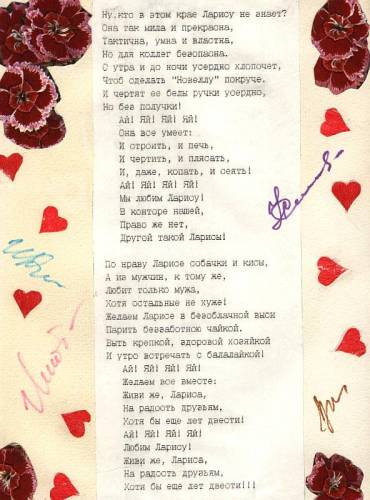 Ну,кто в этом крае Ларису не знает?
Она так мила и прекрасна,
Тактична, умна и властна,
Но для коллег безопасна.
С утра и до ночи усердно хлопочет,
Чтоб сделать "Новеллу" покруче.
И чертят ее белы ручки усердно,
Но без получки!
Ай! Яй! Яй! Яй!
Она все умеет:
И строить, и печь,
И чертить, и плясать,
И, даже, копать, и сеять!
Ай! Яй! Яй! Яй!
Мы любим Ларису!
В конторе нашей,
Право же нет,
Другой такой Ларисы!
По нраву Ларисе собачки и кисы,
А из мужчин, к тому же,
Любит только мужа,
Хотя остальные не хуже!
Желаем Ларисе в безоблачной выси
Парить беззаботною чайкой.
Быть крепкой, здоровой хозяйкой
И утро встречать с балалайкой!
Ай! Яй! Яй! Яй!
Желаем все вместе:
Живи же, Лариса,
На радость друзьям,
Хотя бы еще лет двести!
Ай! Яй! Яй! Яй!
Любим Ларису!
Живи же, Лариса,
На радость друзьям,
Хотя бы еще лет двести!!!